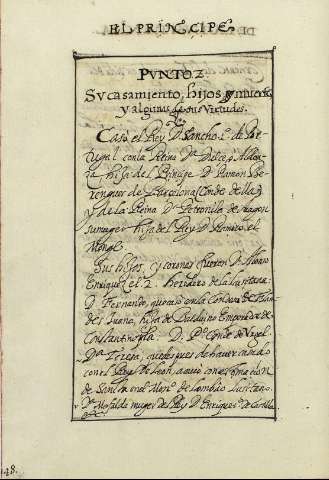 EL PRINCIPE
PVNTO 2
Su casamiento, hijos y muerte
y algunas de sus Virtudes.
Casó el Rey D. Sancho 1.º de Por
tugal con la Reina D.ª Dulce, o Aldon
za, hija del Principe D. Ramon Be
renguer de Barcelona Conde de ella,
y de la Reina D.ª Petronilla de Aragon
su muger hija del Rey D. Ramiro el
Monge.
Sus hijos, y coronas fueron D. Alonso
Enriquez el 2. heridero de la Lusitana.
D. Fernando, que casó con la Condesa de Flan
des Juana, hija de Balduino Emperador de
Constantinopla. D. P.º Conde de Vrgel.
D.ª Teresa, que despues de haver casado
con el Rey de Leon,
de Sancha en el Mon.º de Lorbao
D.ª Mafalda muger del Rey D. Enrique 1.º de Castilla
148.